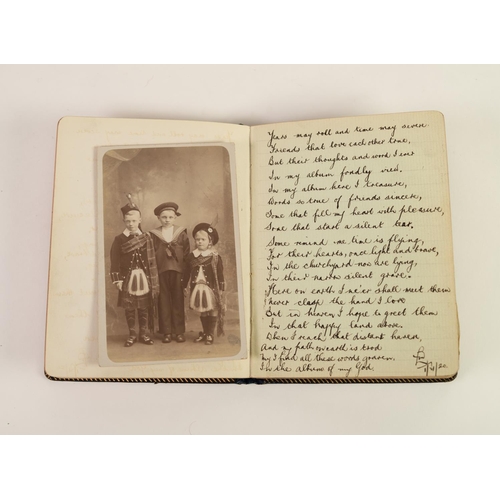 Years may roll and time may sever
Friends that love each other true,
But their thoughts and word I ever
In my album fondly view.
In my album here I treasure,
Words so true of friends sincere,
Some that fill my heart with pleasure,
Some that start a silent tear.
Some remind me time is flying,
For their hearts, once light and brave,
In the churchyard now are lying,
In their narrow silent grave.
Here on earth I ne'er shall meet them
Never clasp the hand I love
But in heaven I hope to greet them
In that happy land above.
When I reach that distant haven,
And my path on earth is trod
May I find all these words graven
In the album of my God.